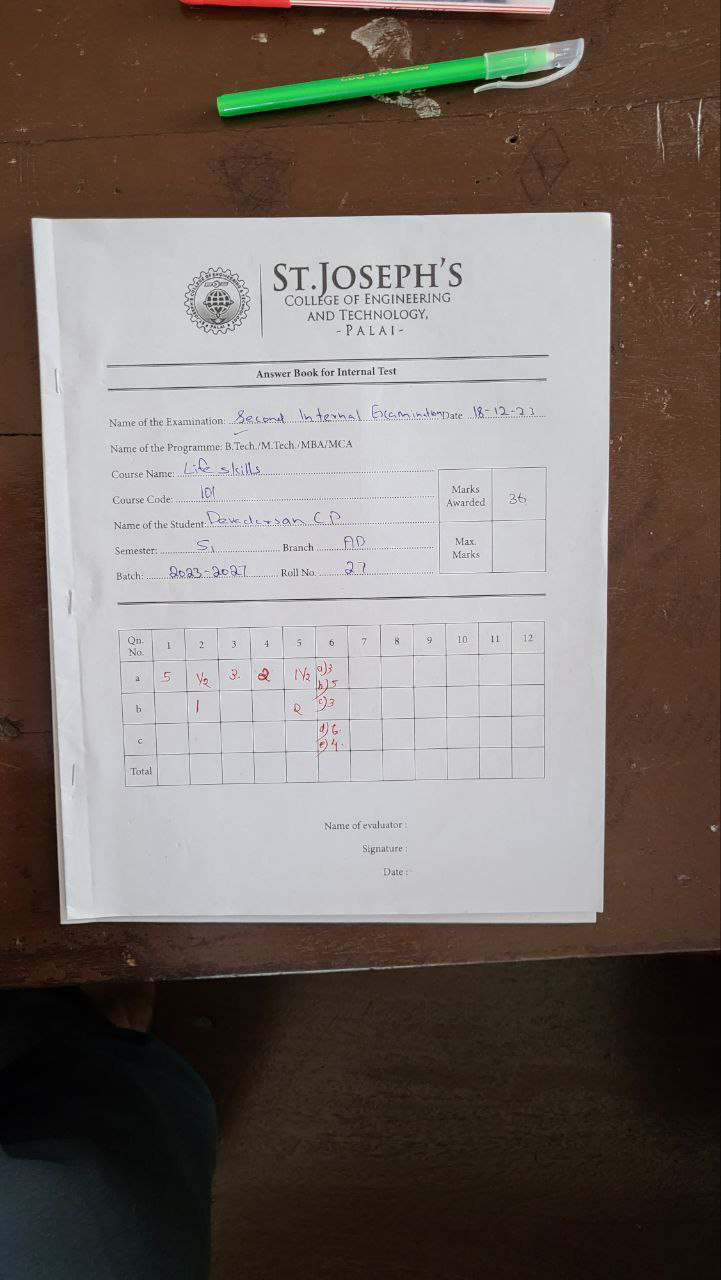 ST.JOSEPH'S
COLLEGE OF ENGINEERING
AND TECHNOLOGY,
- PALAI -
Answer Book for Internal Test
Name of the Examination: Second Internal Examination Date 18-12-23
Name of the Programme: B.Tech./M.Tech./MBA/MCA
Course Name: Life skills
Course Code: 101
Name of the Student: Devadarsan C P
Semester: S1 Branch AD
Batch: 2023-2027 Roll No. 27
Marks Awarded 36
Max. Marks
Qn. No. 1 2 3 4 5 6 7 8 9 10 11 12
a 5 1/2 3 2 1 1/2 a) 3
b) 5
b 1 2 c) 3
c d) 6
e) 4
Total
Name of evaluator :
Signature :
Date :